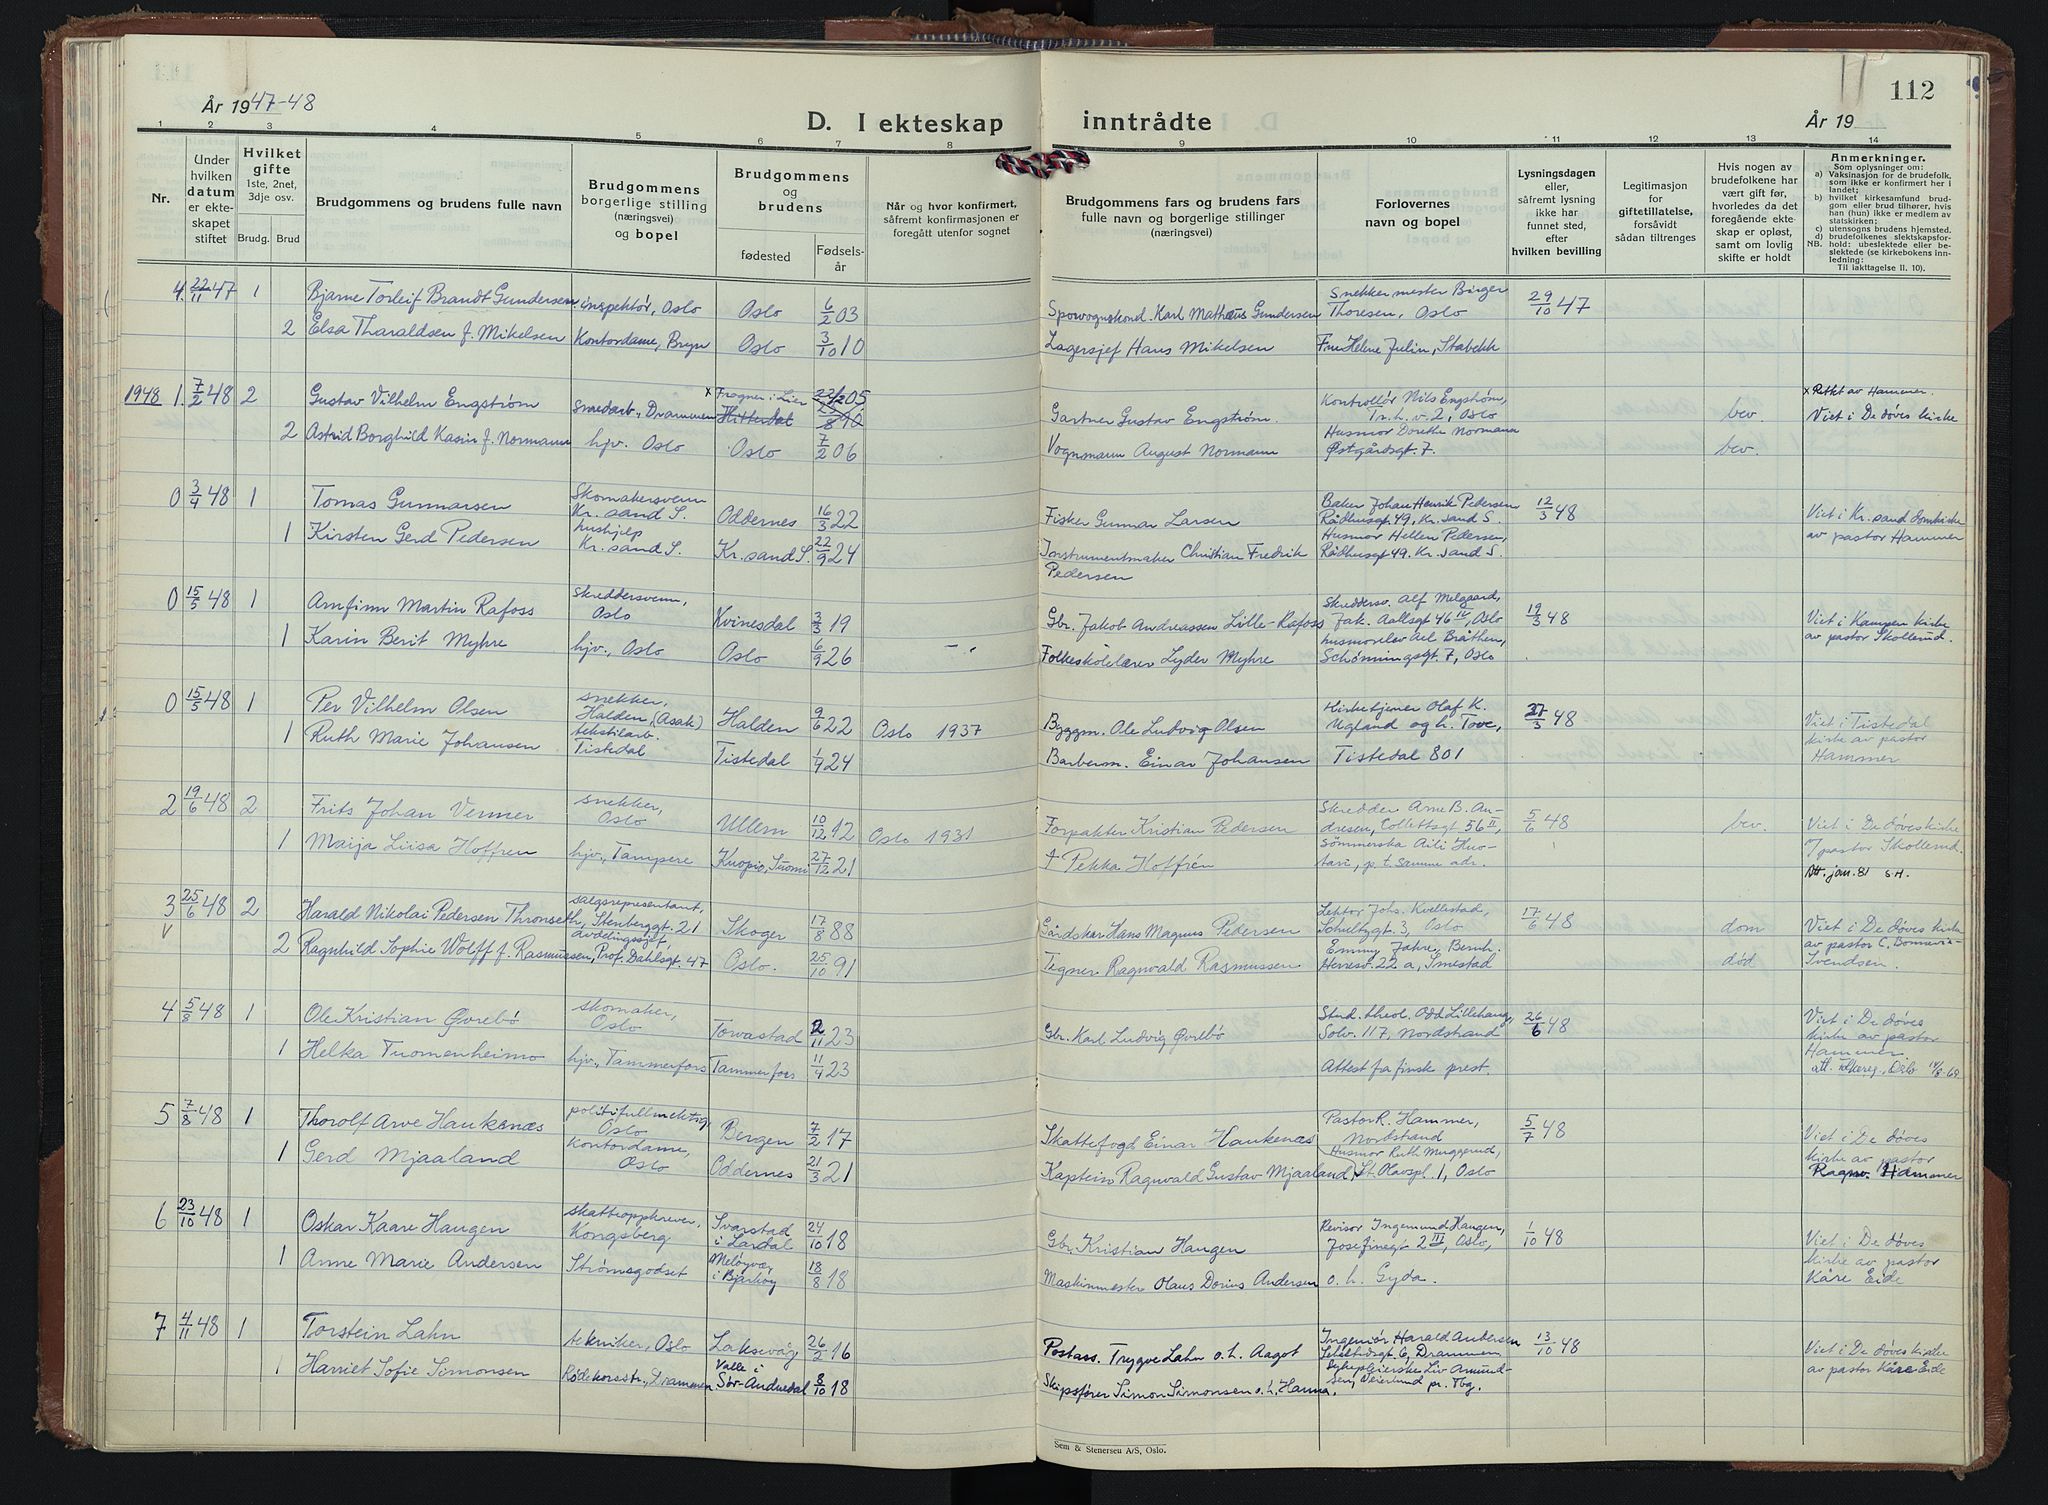 År 1947-48
112
D. I ekteskap inntrådte
År 19
1 2 3 4 5 6 7 8 9 10 11 12 13 14
Nr.
Under hvilken datum er ekteskapet stiftet
Hvilket gifte 1ste, 2net, 3dje osv.
Brudg. Brud
Brudgommens og brudens fulle navn
Brudgommens borgerlige stilling (næringsvei) og bopel
Brudgommens og brudens
fødested
Fødselsår
Når og hvor konfirmert, såfremt konfirmasjonen er foregått utenfor sognet
Brudgommens fars og brudens fars fulle navn og borgerlige stillinger (næringsvei)
Forlovernes navn og bopel
Lysningsdagen eller, såfremt lysning ikke har funnet sted, efter hvilken bevilling
Legitimasjon for giftetillatelse, forsåvidt sådan tiltrenges
Hvis nogen av brudefolkene har vært gift før, hvorledes da det foregående ekteskap er opløst, samt om lovlig skifte er holdt
Anmerkninger.
Som oplysninger om:
a) Vaksinasjon for de brudefolk, som ikke er konfirmert her i landet;
b) hvilket kirkesamfund brudgom eller brud tilhører, hvis han (hun) ikke er medlem av statskirken;
c) utensogns brudens hjemsted.
d) brudefolkenes slektskapsforhold: ubeslektede eller beslektede (se kirkebokens innledning:
NB. Til iakttagelse II, 10).
4. 22/11 47 1 Bjarne Torleif Brandt Gundersen inspektør, Oslo Oslo 6/2 03 Sporvognskond. Karl Mathæus Gundersen Snekkermester Birger Thoresen, Oslo 29/10 47
2 Elsa Tharaldsen f. Mikelsen Kontordame, Bryn Oslo 3/10 10 Lagersjef Hans Mikelsen Fru Helene Julin, Stabekk
1948 1. 7/2 48 2 Gustav Vilhelm Engstrøm smedarb., Drammen x Frogner i Lier Hittedal 23/12 05 Gartner Gustav Engstrøm. Kontrollør Nils Engstrøm, Tr.h.v. 2, Oslo bev x Rettet av Hammer. Viet i De døves kirke
2 Astrid Borghild Kasin f. Normann hjv. Oslo Oslo 7/2 06 Vognmann August Normann Husmor Dorethe Normann Østgårdsgt. 7. bev.
0 3/4 48 1 Tomas Gunnarsen Skomakersvenn Kr. sand S. Oddernes 16/3 22 Fisker Gunnar Larsen Baker Johan Henrik Pedersen Rådhusgt 49, Kr. sand S. 12/3 48 Viet i Kr. sand domkirke av pastor Hammer
1 Kirsten Gerd Pedersen hushjelp Kr. sand S. Kr. sand S. 22/9 24 Instrumentmaker Christian Fredrik Pedersen Husmor Hellen Pedersen, Rådhusgt 49. Kr. sand S.
0 15/5 48 1 Arnfinn Martin Rafoss skreddersvenn, Oslo Kvinesdal 2/3 19 Gbr. Jakob Andreassen Lille-Rafoss Skreddersv. Alf Melgaard, Jak. Aallsgt 46 IV, Oslo 19/3 48 Viet i Kampen kirke av pastor Skollerud.
1 Karin Berit Myhre hjv., Oslo Oslo 6/9 26 Folkeskolelærer Lyder Myhre husmorelev Ael Bråthen, Schønningsgt. 7, Oslo
0 15/5 48 1 Per Vilhelm Olsen snekker, Halden, (Asak) Halden 9/6 22 Oslo 1937 Byggm. Ole Ludvig Olsen Kirketjener Olaf K. Ugland og h. Tove, 27/3 48 Viet i Tistedal kirke av pastor Hammer
1 Ruth Marie Johansen tekstilarb. Tistedal Tistedal 1/4 24 Barberm. Einar Johansen Tistedal 801
2 19/6 48 2 Frits Johan Venner snekker, Oslo Ullem 10/12 12 Oslo 1931 Forpakter Kristian Pedersen Skredder Arne B. Andresen, Collettsgt 56 II, 5/6 48 bev Viet i De døves kirke pastor Skollerud.
1 Maija Liisa Hoffren hjv., Tampere Kuopio, Suomi 27/12 21 Pekka Hoffrén Sömmerska Aili Huotari, p.t. samme adr. Att. jan. 81 S.H.
3 25/6 48 2 Harald Nikolai Pedersen Thronseth, salgsrepresentant, Stenberggt. 21 Skoger 17/8 88 Gårdskar Hans Magnus Pedersen Lektor Johs. Kvellestad, Schultzgt. 3, Oslo 17/6 48 dom Viet i De døves kirke av pastor C. Bonnevie-Svendsen.
2 Ragnhild Sophie Wolff f. Rasmussen, avdelingssjef, Prof. Dahlsgt. 47 Oslo. 25/10 91 Tegner Ragnvald Rasmussen Emmy Jahre, Bernh. Herresv. 22 a, Smestad død
4 5/8 48 1 Ole Kristian Øvrebø skomaker, Oslo Torvastad 2/11 23 Gbr. Karl Ludvig Øvrebø Stud. theol. Odd Lillehaug, Solv. 117, Nordstrand 26/6 48 Viet i De døves kirke av pastor Hammer att. Folkereg., Oslo
1 Helka Tuomenheimo hjv., Tammerfors Tammerfors 11/4 23 Attest fra finsk prest.
5 7/8 48 1 Thorolf Arve Haukenæs politifullmektig Oslo Bergen 7/2 17 Skattefogd Einar Haukenæs Pastor R. Hammer, Nordstrand 5/7 48 Viet i De døves kirke av pastor Ragnv. Hammer
1 Gerd Mjaaland kontordame, Oslo Oddernes 21/3 21 Kaptein Ragnvald Gustav Mjaaland Husmor Ruth Muggerud, St. Olavspl. 1, Oslo
6 23/10 48 1 Oskar Kaare Haugen skatteoppkrever, Kongsberg Svarstad i Lardal 24/10 18 Gbr. Kristian Haugen Revisor Ingemund Haugen, Josefinegt 2 III, Oslo, 1/10 48 Viet i De døves kirke av pastor Kåre Eide
1 Anne Marie Andersen Strømsgodset Meløyvær i Bjarkøy 18/8 18 Maskinmester Olaus Dorius Andersen o. h. Gyda.
7 4/11 48 1 Torstein Lahn tekniker, Oslo Laksevåg 26/2 16 Postass. Trygve Lahn o. h. Aagot Ingeniør Harald Andersen Drammen 13/10 48 Viet i De døves kirke av pastor Kåre Eide
1 Harriet Sofie Simonsen Rødekorsstr., Drammen Valle i Sør-Audnedal 8/10 18 Skipsfører Simon Simonsen o. h. Hanna. Sykepleierske Liv Amundsen, Veierlund pr. Tbg.
Sem & Stenersen A/S, Oslo.